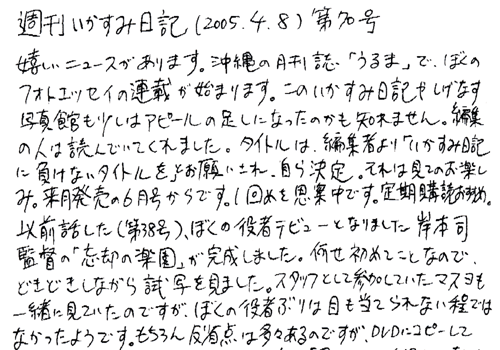 週刊いかすみ日記(2005.4.8)第70号
嬉しいニュースがあります。沖縄の月刊誌「うるま」で、ぼくの
フォトエッセイの連載が始まります。このいかすみ日記やしげなす
写真館も少しはアピールの足しになったのかも知れません。編集
の人は読んでいてくれました。タイトルは、編集者より「いかすみ日記
に負けないタイトルを」とお願いされ、自ら決定。それは見てのお楽し
み。来月発売の6月号からです。1回めを思案中です。定期購読おすすめ。
以前話した(第38号)、ぼくの役者デビューとなりました岸本司
監督の「忘却の楽園」が完成しました。何せ初めてことなので、
どきどきしながら試写を見ました。スタッフとして参加していたマスヨも
一緒に見ていたのですが、ぼくの役者ぶりは目も当てられない程では
なかったようです。もちろん反省点は多々あるのですが、DVDにコピーして